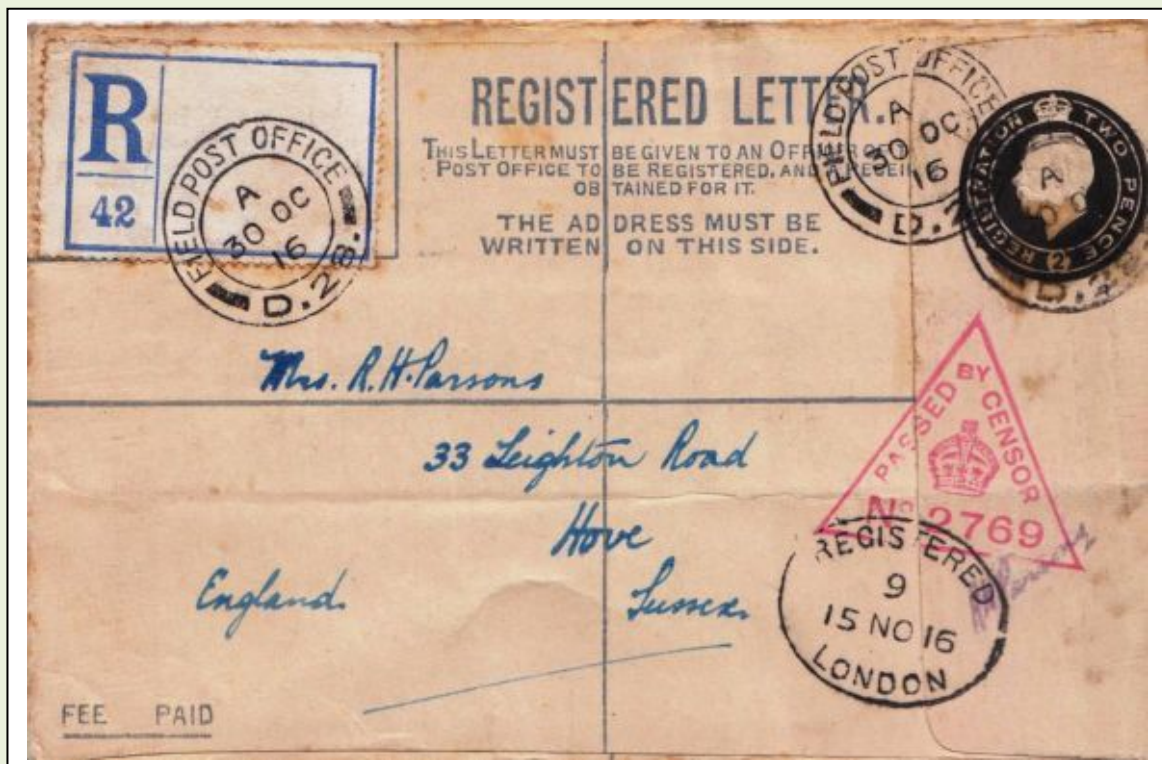 R
42
FIELD POST OFFICE
A
30 OC
16
D.28.
REGISTERED LETTER.
THIS LETTER MUST BE GIVEN TO AN OFFICER OF THE
POST OFFICE TO BE REGISTERED, AND A RECEIPT
OBTAINED FOR IT.
THE ADDRESS MUST BE
WRITTEN ON THIS SIDE.
FIELD POST OFFICE
A
30 OC
16
D.2
REGISTRATION TWO PENCE
2
A
D.2
Mrs. R.H. Parsons
33 Leighton Road
Hove
England.
Sussex.
PASSED BY CENSOR
No 2769
REGISTERED
9
15 NO 16
LONDON
FEE PAID